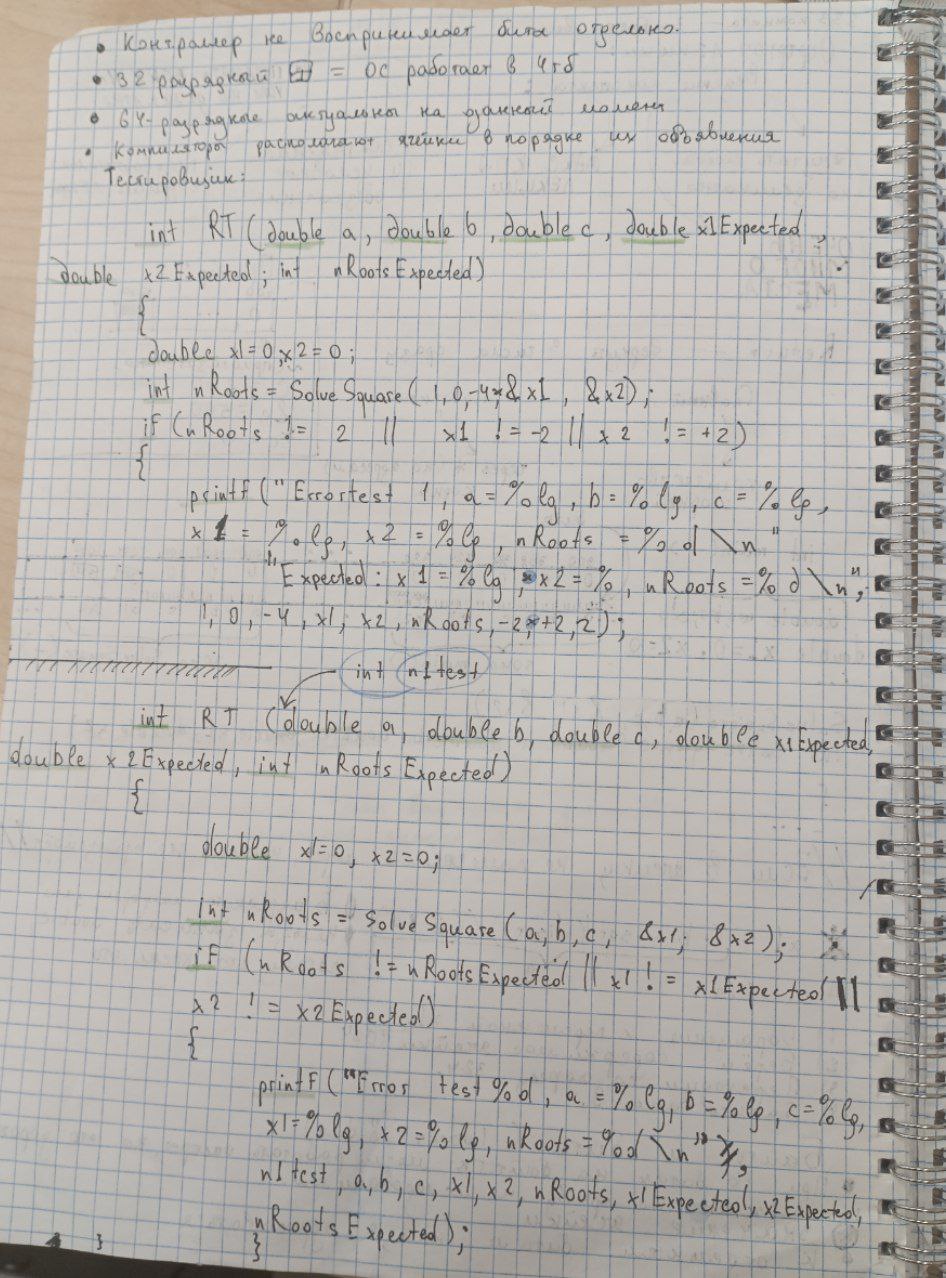 • Контроллер не Воспринимает биты отдельно.
• 32 разрядный = ОС работает в 4гб
• 64-разрядные актуальны на данный момент
• Компиляторы располагают ячейки в порядке их объявления
Тестировщик:
int RT (double a, double b, double c, double x1Expected,
double x2Expected; int nRootsExpected)
{
double x1=0, x2=0;
int nRoots = SolveSquare (1, 0, -4, &x1, &x2);
if (nRoots != 2 || x1 != -2 || x2 != +2)
{
printf ("Errortest 1, a=%lg, b=%lg, c=%lg,
x1=%lg, x2=%lg, nRoots=%d\n"
"Expected: x1=%lg, x2=%, nRoots=%d\n",
1, 0, -4, x1, x2, nRoots, -2, +2, 2);
int n1test
int RT (double a, double b, double c, double x1Expected,
double x2Expected, int nRootsExpected)
{
double x1=0, x2=0;
int nRoots = SolveSquare (a, b, c, &x1; &x2);
if (nRoots != nRootsExpected || x1 != x1Expected ||
x2 != x2Expected)
{
printf ("Error test %d, a=%lg, b=%lg, c=%lg,
x1=%lg, x2=%lg, nRoots=%d\n",
n1test, a, b, c, x1, x2, nRoots, x1Expected, x2Expected,
nRootsExpected);
} }